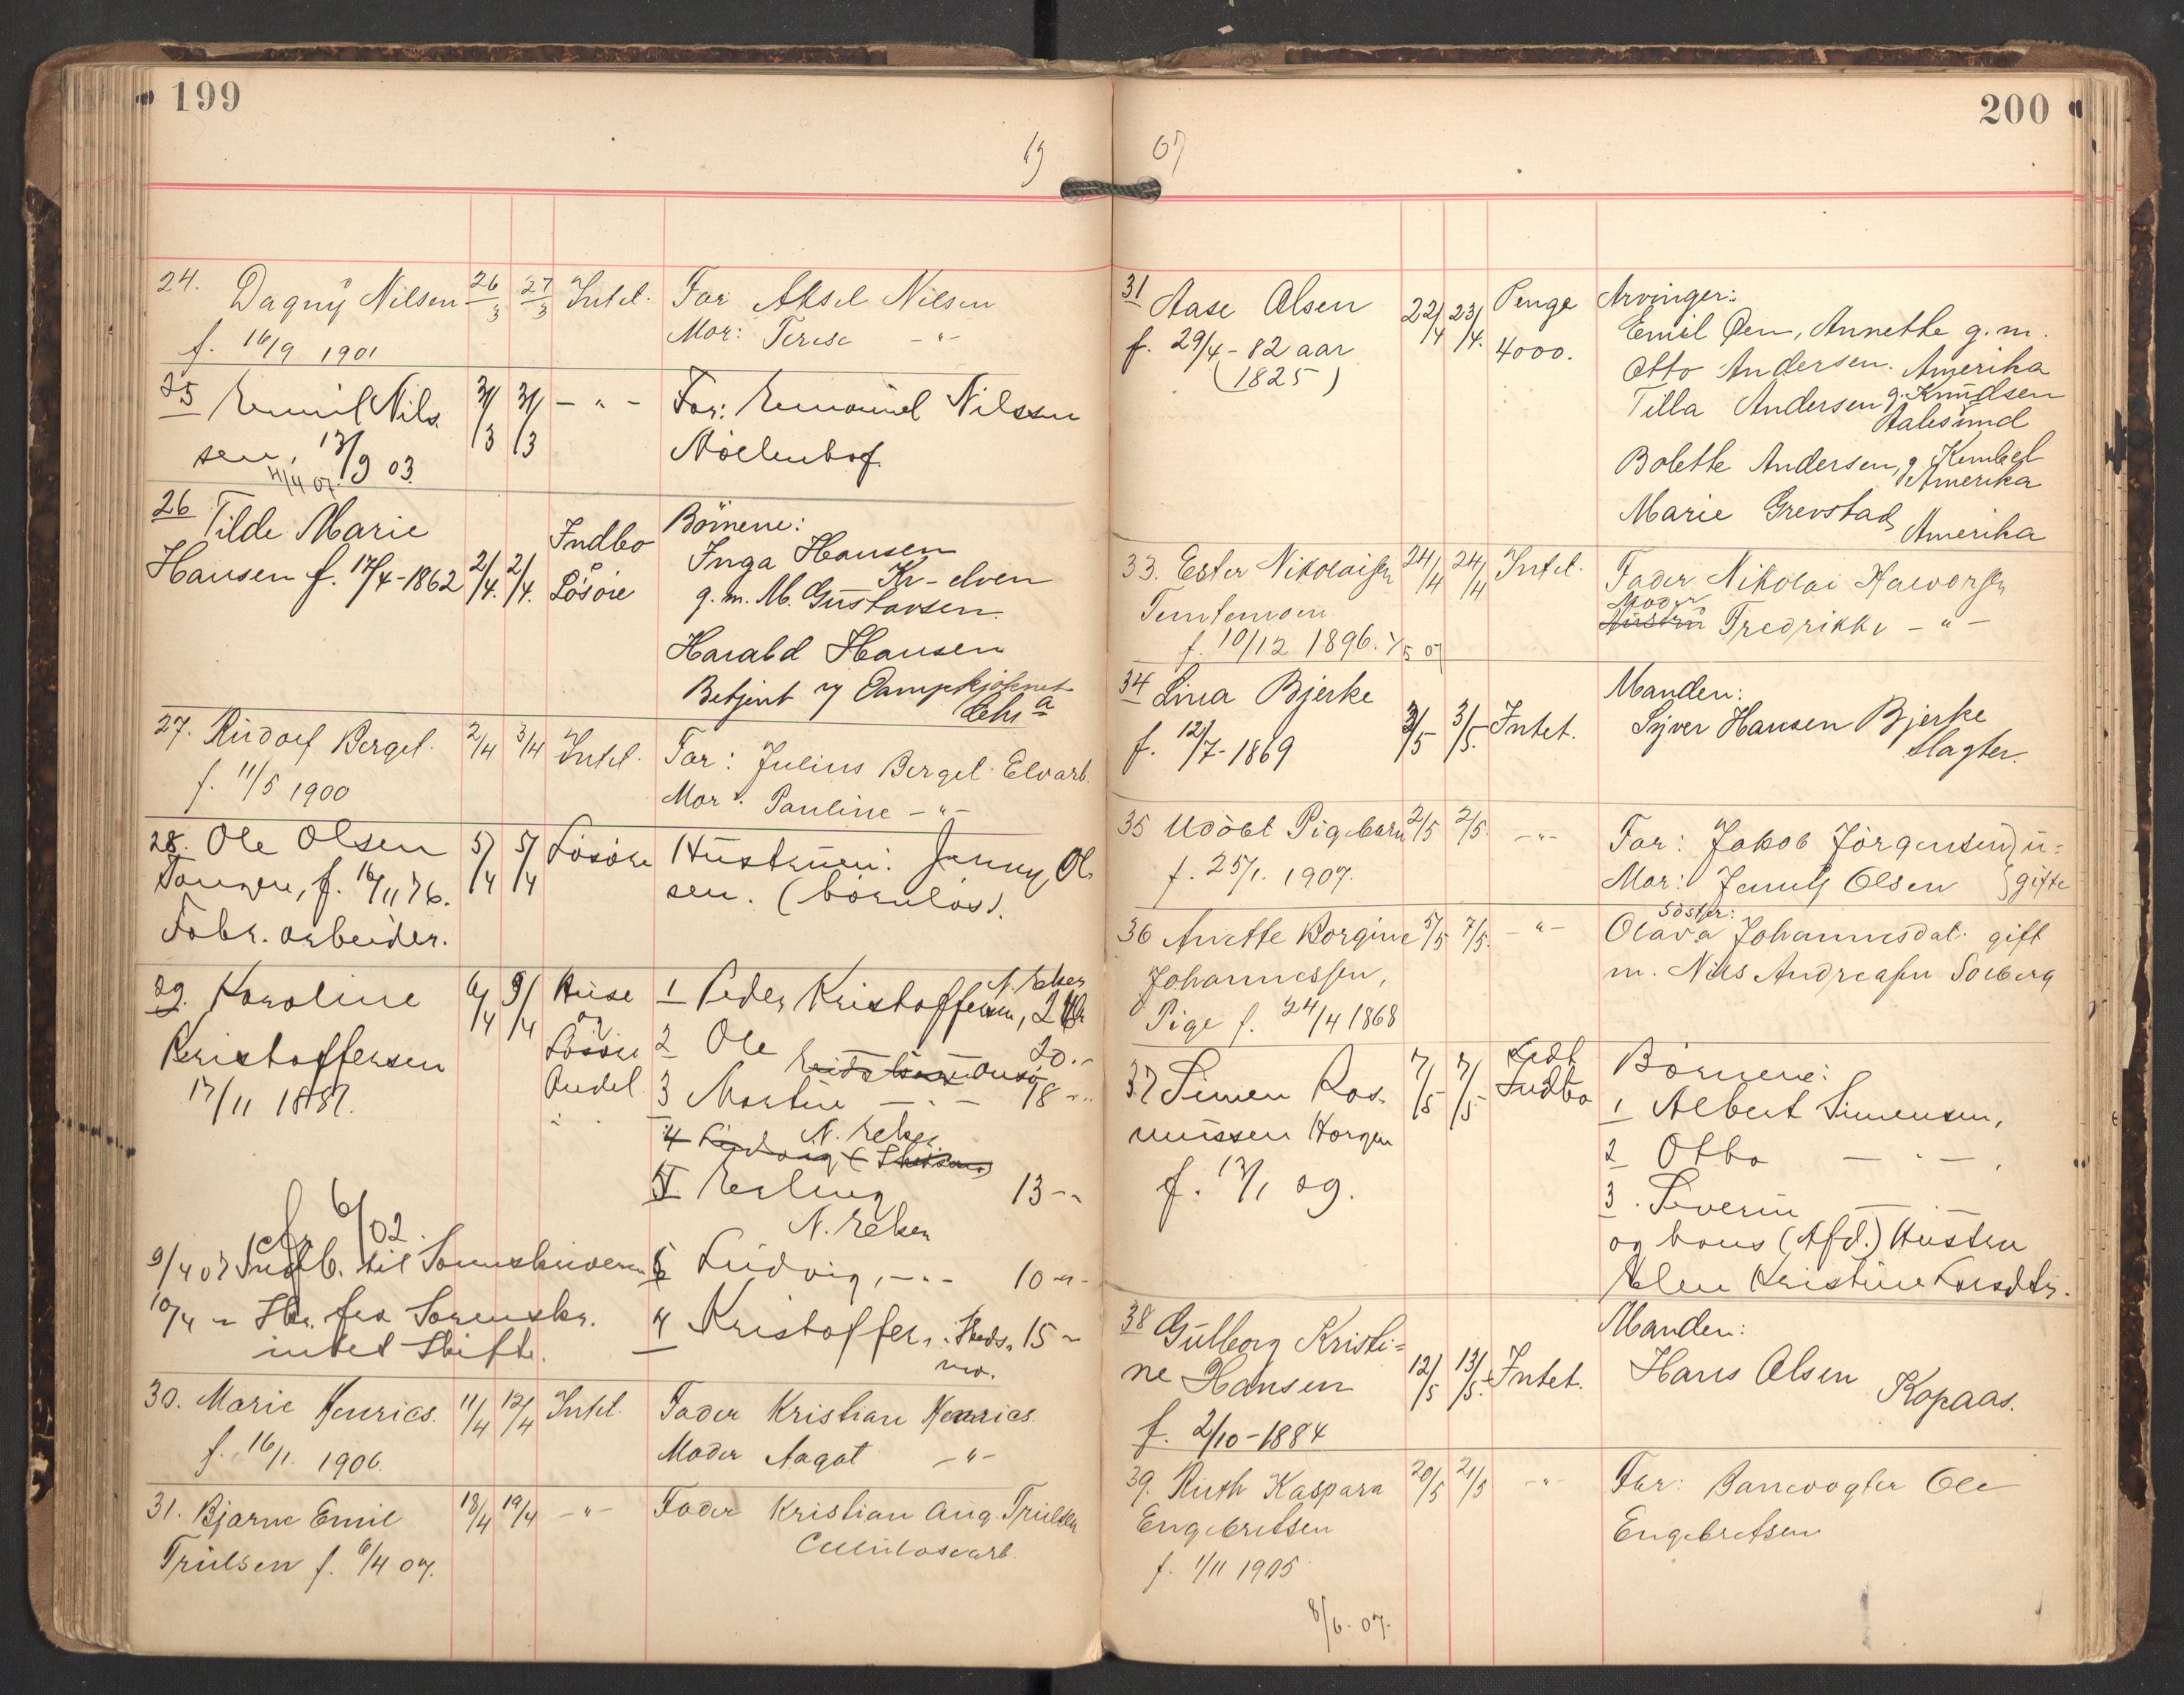 199
19
24. Dagny Nilsen 26/3 27/3 Intet. Far Aksel Nilsen
Mor: Terese -"-
f. 16/9 1901
25 Emil Nils 31/3 31/3 - " - Far: Emanuel Nilssen
sen, 13/9 03.
11/4 07.
26 Tilde Marie
Hansen f. 17/4-1862 2/4. 2/4. Indbo & Løsøre
Börnene:
Inga Hansen
Kr-elven
g. m. M. Gustavsen.
Harald Hansen
Betjent
27. Rudolf Bergel. 2/4 3/4 Intet. Far: Julius Bergel. Elvarb.
f. 11/5 1900 Mor: Pauline -"-
28. Ole Olsen 5/4 5/4 Løsøre Hustruen: Jenny Ol
Tangen, f. 16/11 76. sen. (börnløs).
Fabr. arbeider.
29. Karoline 6/4 9/4 Huse og Løsøre Andel.
Kristoffersen
17/11 1857.
N. Eker
1 Peder Kristoffersen, 24 Aar
2 Ole 20 -"
3 Martin -"- 18 -"
N. Eker
4 Ludvig
4 Erling 13 -"
N. Eker
5 Ludvig, -"- 10 -"-
cfr 6/02.
9/4 07 Indb. til Sorenskriveren
10/4 - Skr. fra Sorenskr.
intet Skifte.
Kristoffer, 15 -"
30. Marie Henrics. 11/4 12/4 Intet. Fader Kristian Henrics.
f. 16/1. 1906. Moder Aagot -"-
31. Bjarne Emil 18/4 19/4 -"- Fader Kristian Aug. Trulsen
Trulsen f. 6/4 07. Cellulosearb.
200
07
31 Aase Olsen 22/4 23/4. Penge 4000.
f. 29/4 - 82 aar
(1825)
Arvinger:
Emil Øen, Annette g. m.
Otto Andersen. Amerika
Tilla Andersen g. Knudsen
Aalesund
Bolette Andersen, g. Kembel
Amerika
Marie Grevstad, Amerika
33. Ester Nikolaisen 24/4 24/4 Intet. Fader Nikolai Halvorsen
Tomtemoen Moder
Hustru Fredrikke -"-
f. 10/12 1896.
34 Lina Bjerke 3/5 3/5. Intet. Manden:
f. 12/7-1869 Syver Hansen Bjerke
Slagter.
35 Udøbt Pigebarn 2/5 2/5. -"- Far: Jakob Jörgensen } u=
f. 25/1. 1907. Mor: Jenny Olsen } gifte
36 Anette Borgine 5/5 7/5. -"- Söster:
Olava Johannesdat. gift
Johannessen, m. Nils Andreasen Solberg
Pige f. 24/4 1868
37 Simen Ras- 7/5 7/5 Lidt Indbo Börnene:
mussen Horgen 1 Albert Simensen,
f. 13/1 29. 2 Otto -"-,
3. Severin -"-
og hans (Afd.) Hustru
Elen Kristine Larsdtr.
38 Gulborg Kristi= Manden:
ne Hansen 12/5 13/5. Intet. Hans Olsen Kopaas.
f. 2/10-1884
39. Ruth Kaspara 20/5 21/5 -"- Far: Banevogter Ole
Engebretsen Engebretsen
f. 1/11 1905
8/6. 07.